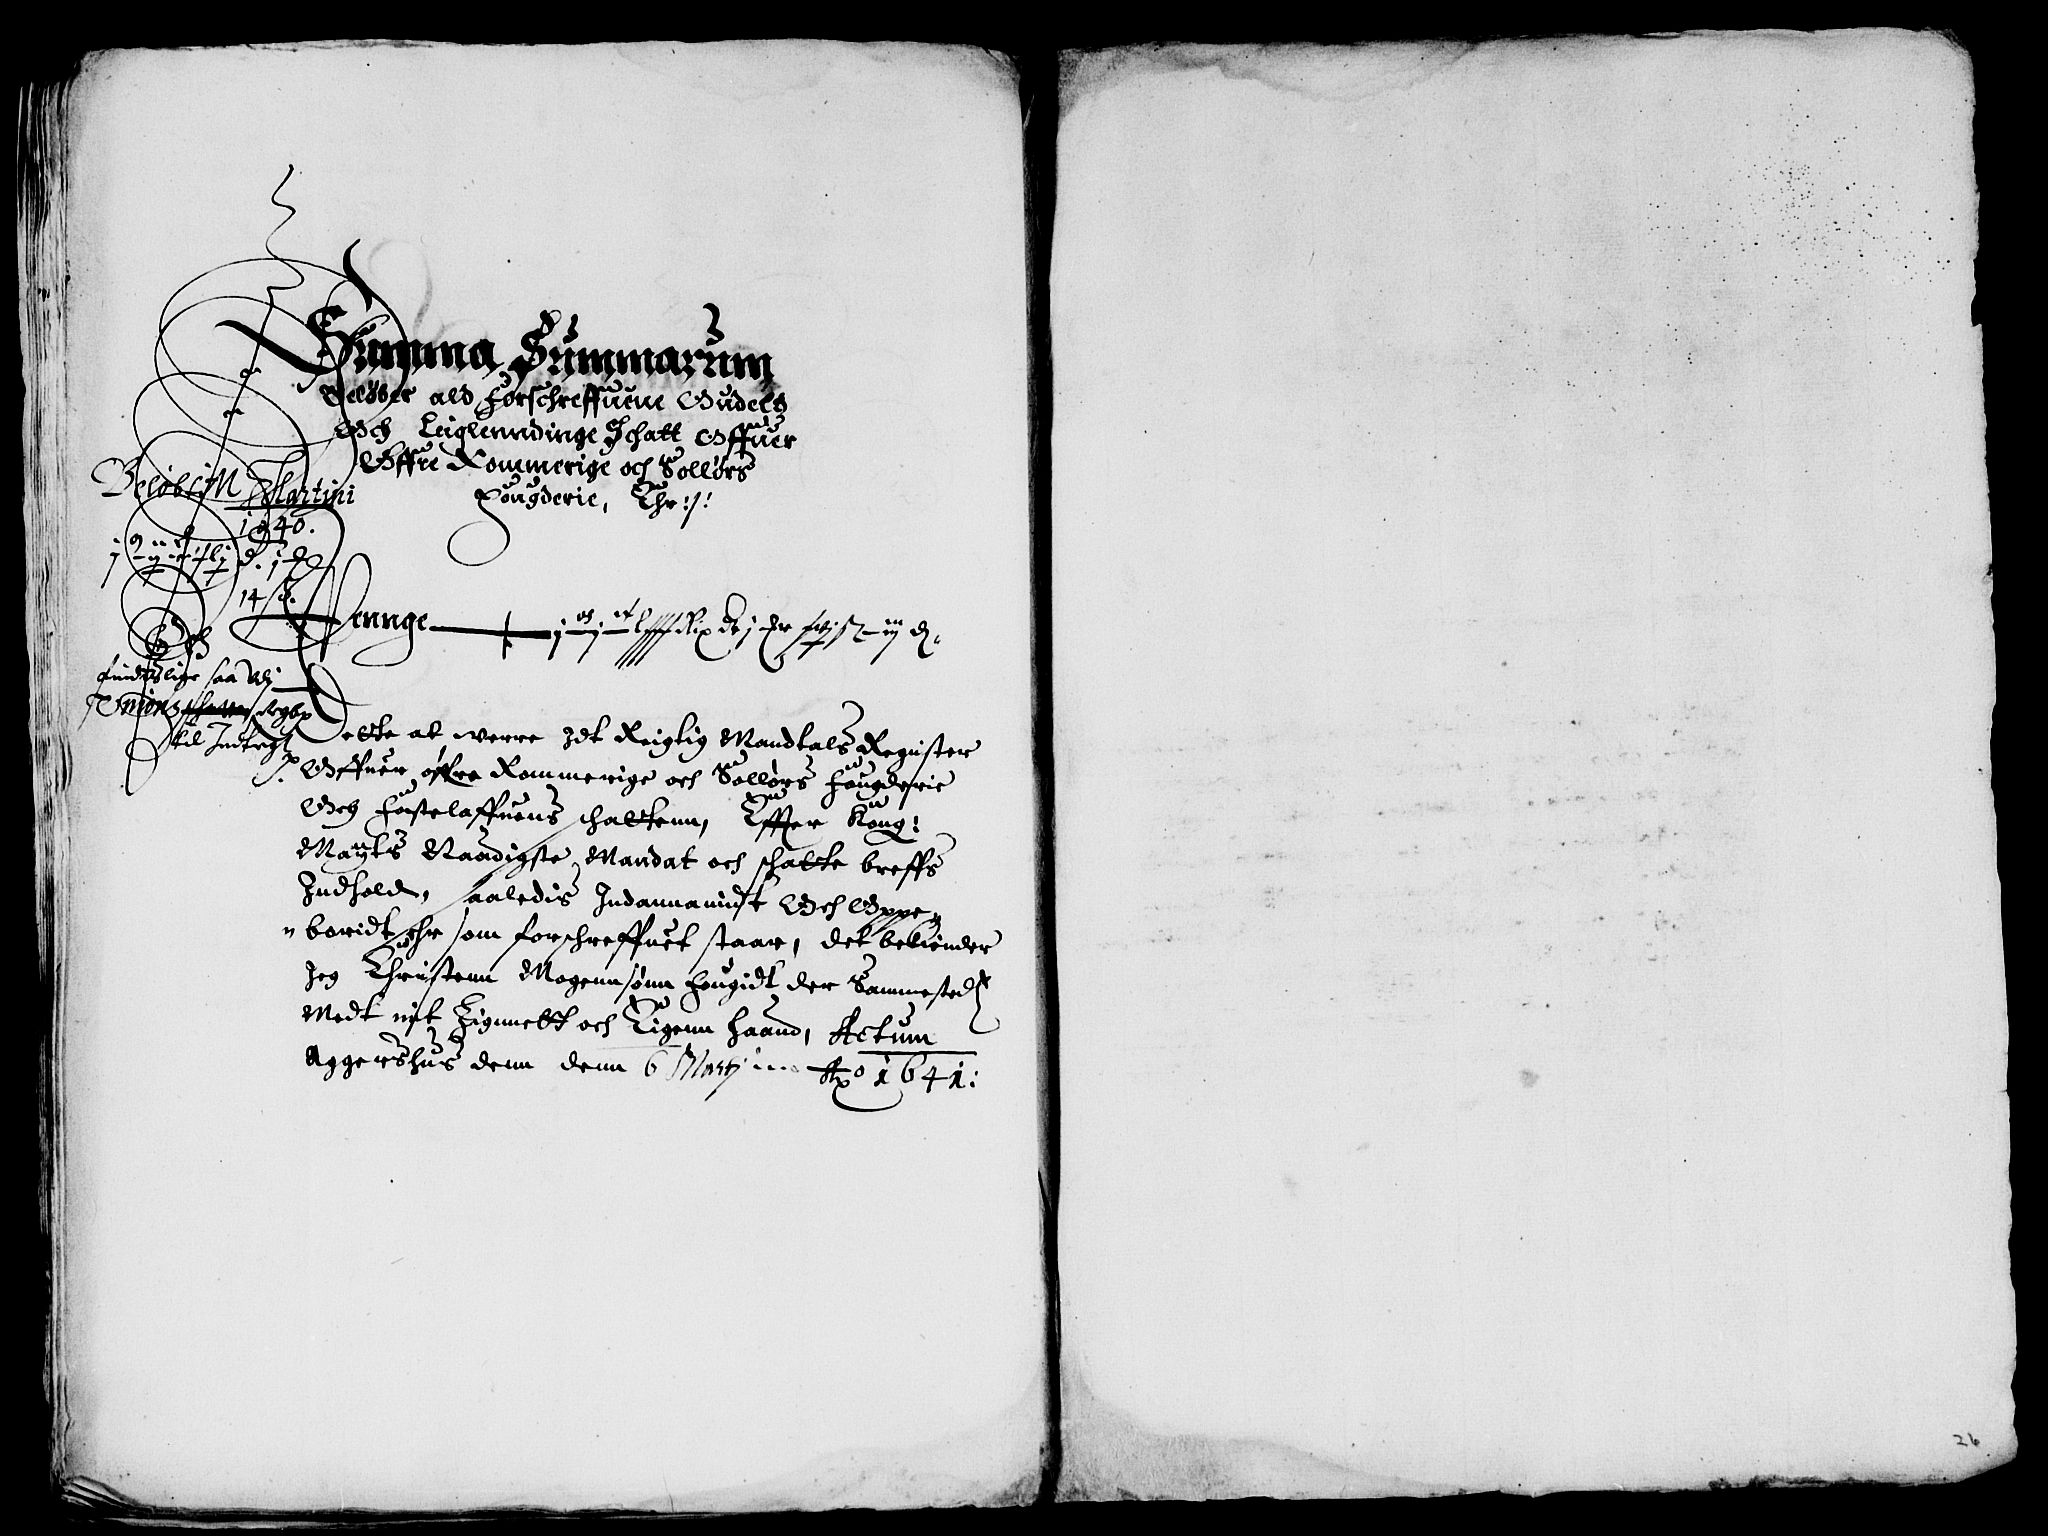 Summa Summarum
Beløber ald forschreffuene Gudelz
Och Leiglenndinge Schatt Offuer
Offre Rommerige och Sollørs
Fougderie, Thr:/:
Beløb Martini
1640.
14 ß.
Pennge
Och
findislige saa vdj
Unions
til Indtegt
Dette at werre Jdt Reigtig Mandtals Register
Offuer øffre Rommerige och Sollørs fougderie
Och fastelaffuens schattenn, Effter Kong:
Maÿts Naadigste Mandat och schatte breffs
Indhold, saaledis Indannamidt Och Oppe¬
"boridt Ehr som forschreffuet staar, det bekiender
Jeg Christenn Mogennsønn fougidt der Sammestedz
Medt mit Zignnett och Eigenn haand, Actum
Aggershus denn denn 6 Martj Ao 1641:
26